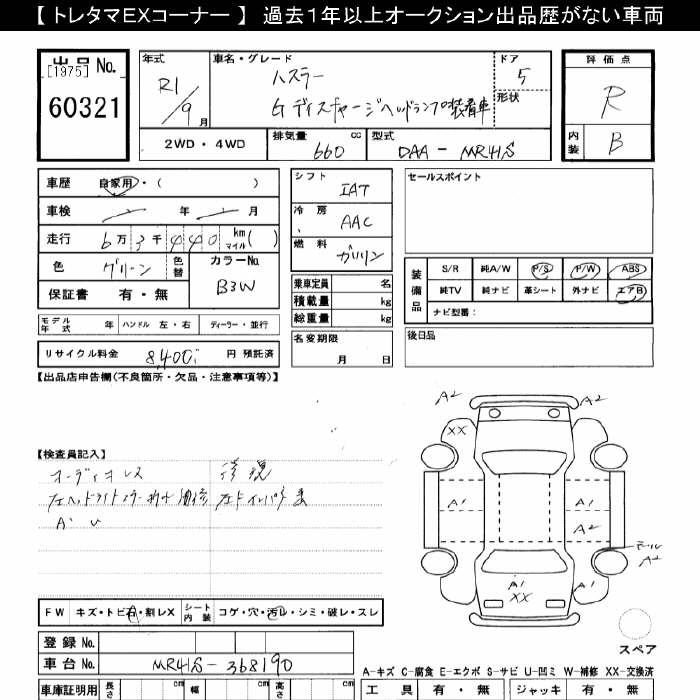 【 トレタマEXコーナー 】 過去1年以上オークション出品歴がない車両
出品 No.
[1975]
60321
年式
R1/9月
車名・グレード
ハスラー
G ディスチャージヘッドランプ装着車
ドア
5
形状
評価点
R
内装
B
2WD・4WD
排気量 cc
660
型式
DAA-MR41S
車歴 自家用・( )
車検 年 月
走行 6万3千440 km マイル ( )
色 グリーン
色替
カラーNo.
B3W
保証書 有・無
モデル年式 年 ハンドル 左・右 ディーラー・並行
リサイクル料金 8,400 円 預託済
シフト
IAT
冷房
AAC
燃料
ガソリン
乗車定員 名
積載量 kg
総重量 kg
名変期限
月 日
セールスポイント
装備品
S/R 純A/W P/S P/W ABS
純TV 純ナビ 革シート 外ナビ エアB
ナビ型番:
後日品
【出品店申告欄(不良箇所・欠品・注意事項等)】
【検査員記入】
オーディオレス
修現
A U
FW キズ・トビ石・割レX
シート内装 コゲ・穴・汚レ・シミ・破レ・スレ
登録 No.
車台 No. MR41S-368190
車庫証明用 長さ cm 幅 cm 高さ cm
A2
A2
XX
A1
A1
A2
モール
A2
A1
XX
A1
スペア
A-キズ C-腐食 E-エクボ S-サビ U-凹ミ W-補修 XX-交換済
工具 有・無 ジャッキ 有・無